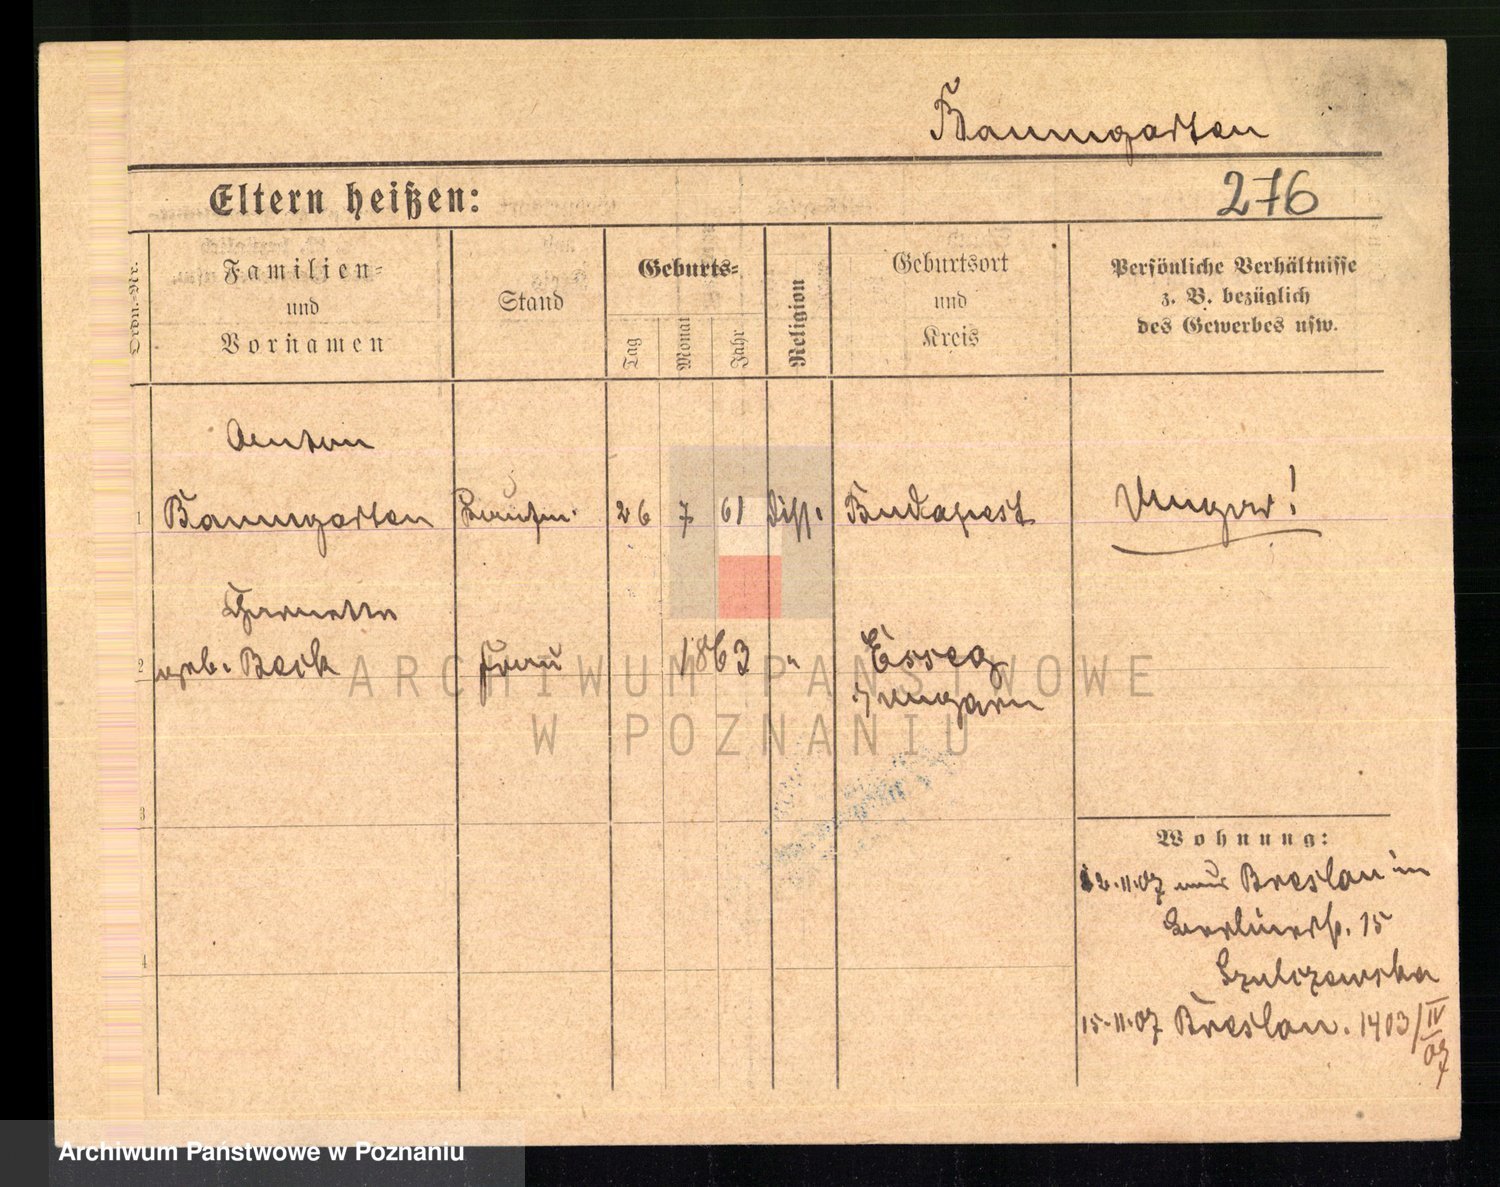 Baumgarten
Eltern heißen:
276
Ordn.-Nr.
Familien-
und
Vornamen
Stand
Geburts-
Tag
Monat
Jahr
Religion
Geburtsort
und
Kreis
Persönliche Verhältnisse
z. B. bezüglich
des Gewerbes usw.
Anton
1 Baumgarten Kaufm. 26 7 61 diss. Budapest Ungar!
geb. Beck
2 Frau 1863 " Esseg
Ungarn
ARCHIWUM PAŃSTWOWE
W POZNANIU
3
Wohnung:
12.11.07 aus Breslau in
Berlinerstr. 15
4
Szulczewska
15.11.07 Breslau. 1403/IV
07
Archiwum Państwowe w Poznaniu